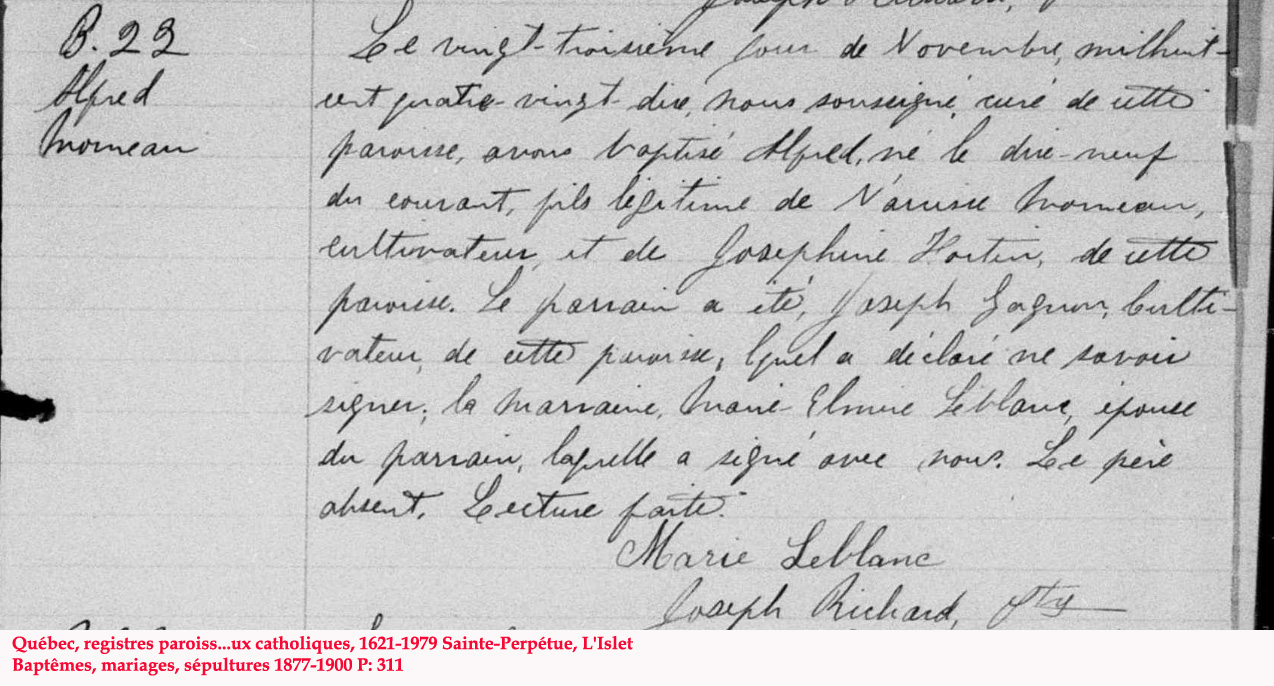 B. 22
Alfred
Morneau
Le vingt-troisième jour de Novembre, milhuit-
cent quatre-vingt-dix, nous soussigné, curé de cette
paroisse, avons baptisé Alfred, né le dix-neuf
du courant, fils légitime de Narcisse Morneau,
cultivateur, et de Joséphine Fortin, de cette
paroisse. Le parrain a été, Joseph Gagnon, Culti-
vateur, de cette paroisse, lquel a déclaré ne savoir
signer; la marraine, Marie-Elmire Leblanc, épouse
du parrain, laquelle a signé avec nous. Le père
absent. Lecture faite.
Marie Leblanc
Joseph Richard, Ptre
Québec, registres paroiss...ux catholiques, 1621-1979 Sainte-Perpétue, L'Islet
Baptêmes, mariages, sépultures 1877-1900 P: 311